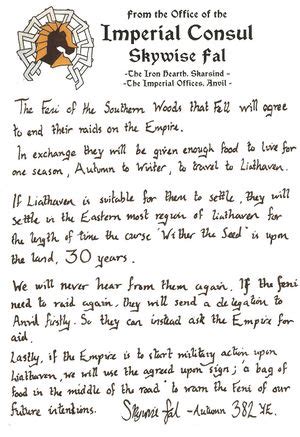 From the Office of the
Imperial Consul
Skywise Fal
-The Iron Hearth, Skarsind -
-The Imperial Offices, Anvil -
The Feni of the Southern Woods that Fell will agree
to end their raids on the Empire.
In exchange they will be given enough food to live for
one season, Autumn to Winter, to travel to Liathaven.
If Liathaven is suitable for them to settle, they will
settle in the Eastern most region of Liathaven for
the length of time the curse "Wither the Seed" is upon
the land, 30 years.
We will never hear from them again. If the feni
need to raid again, they will send a delegation to
Anvil firstly. So they can instead ask the Empire for
aid.
Lastly, if the Empire is to start military action upon
Liathaven, we will use the agreed upon sign; 'a bag of
food in the middle of the road' to warn the Feni of our
future intentions. Skywise Fal -Autumn 382 YE.